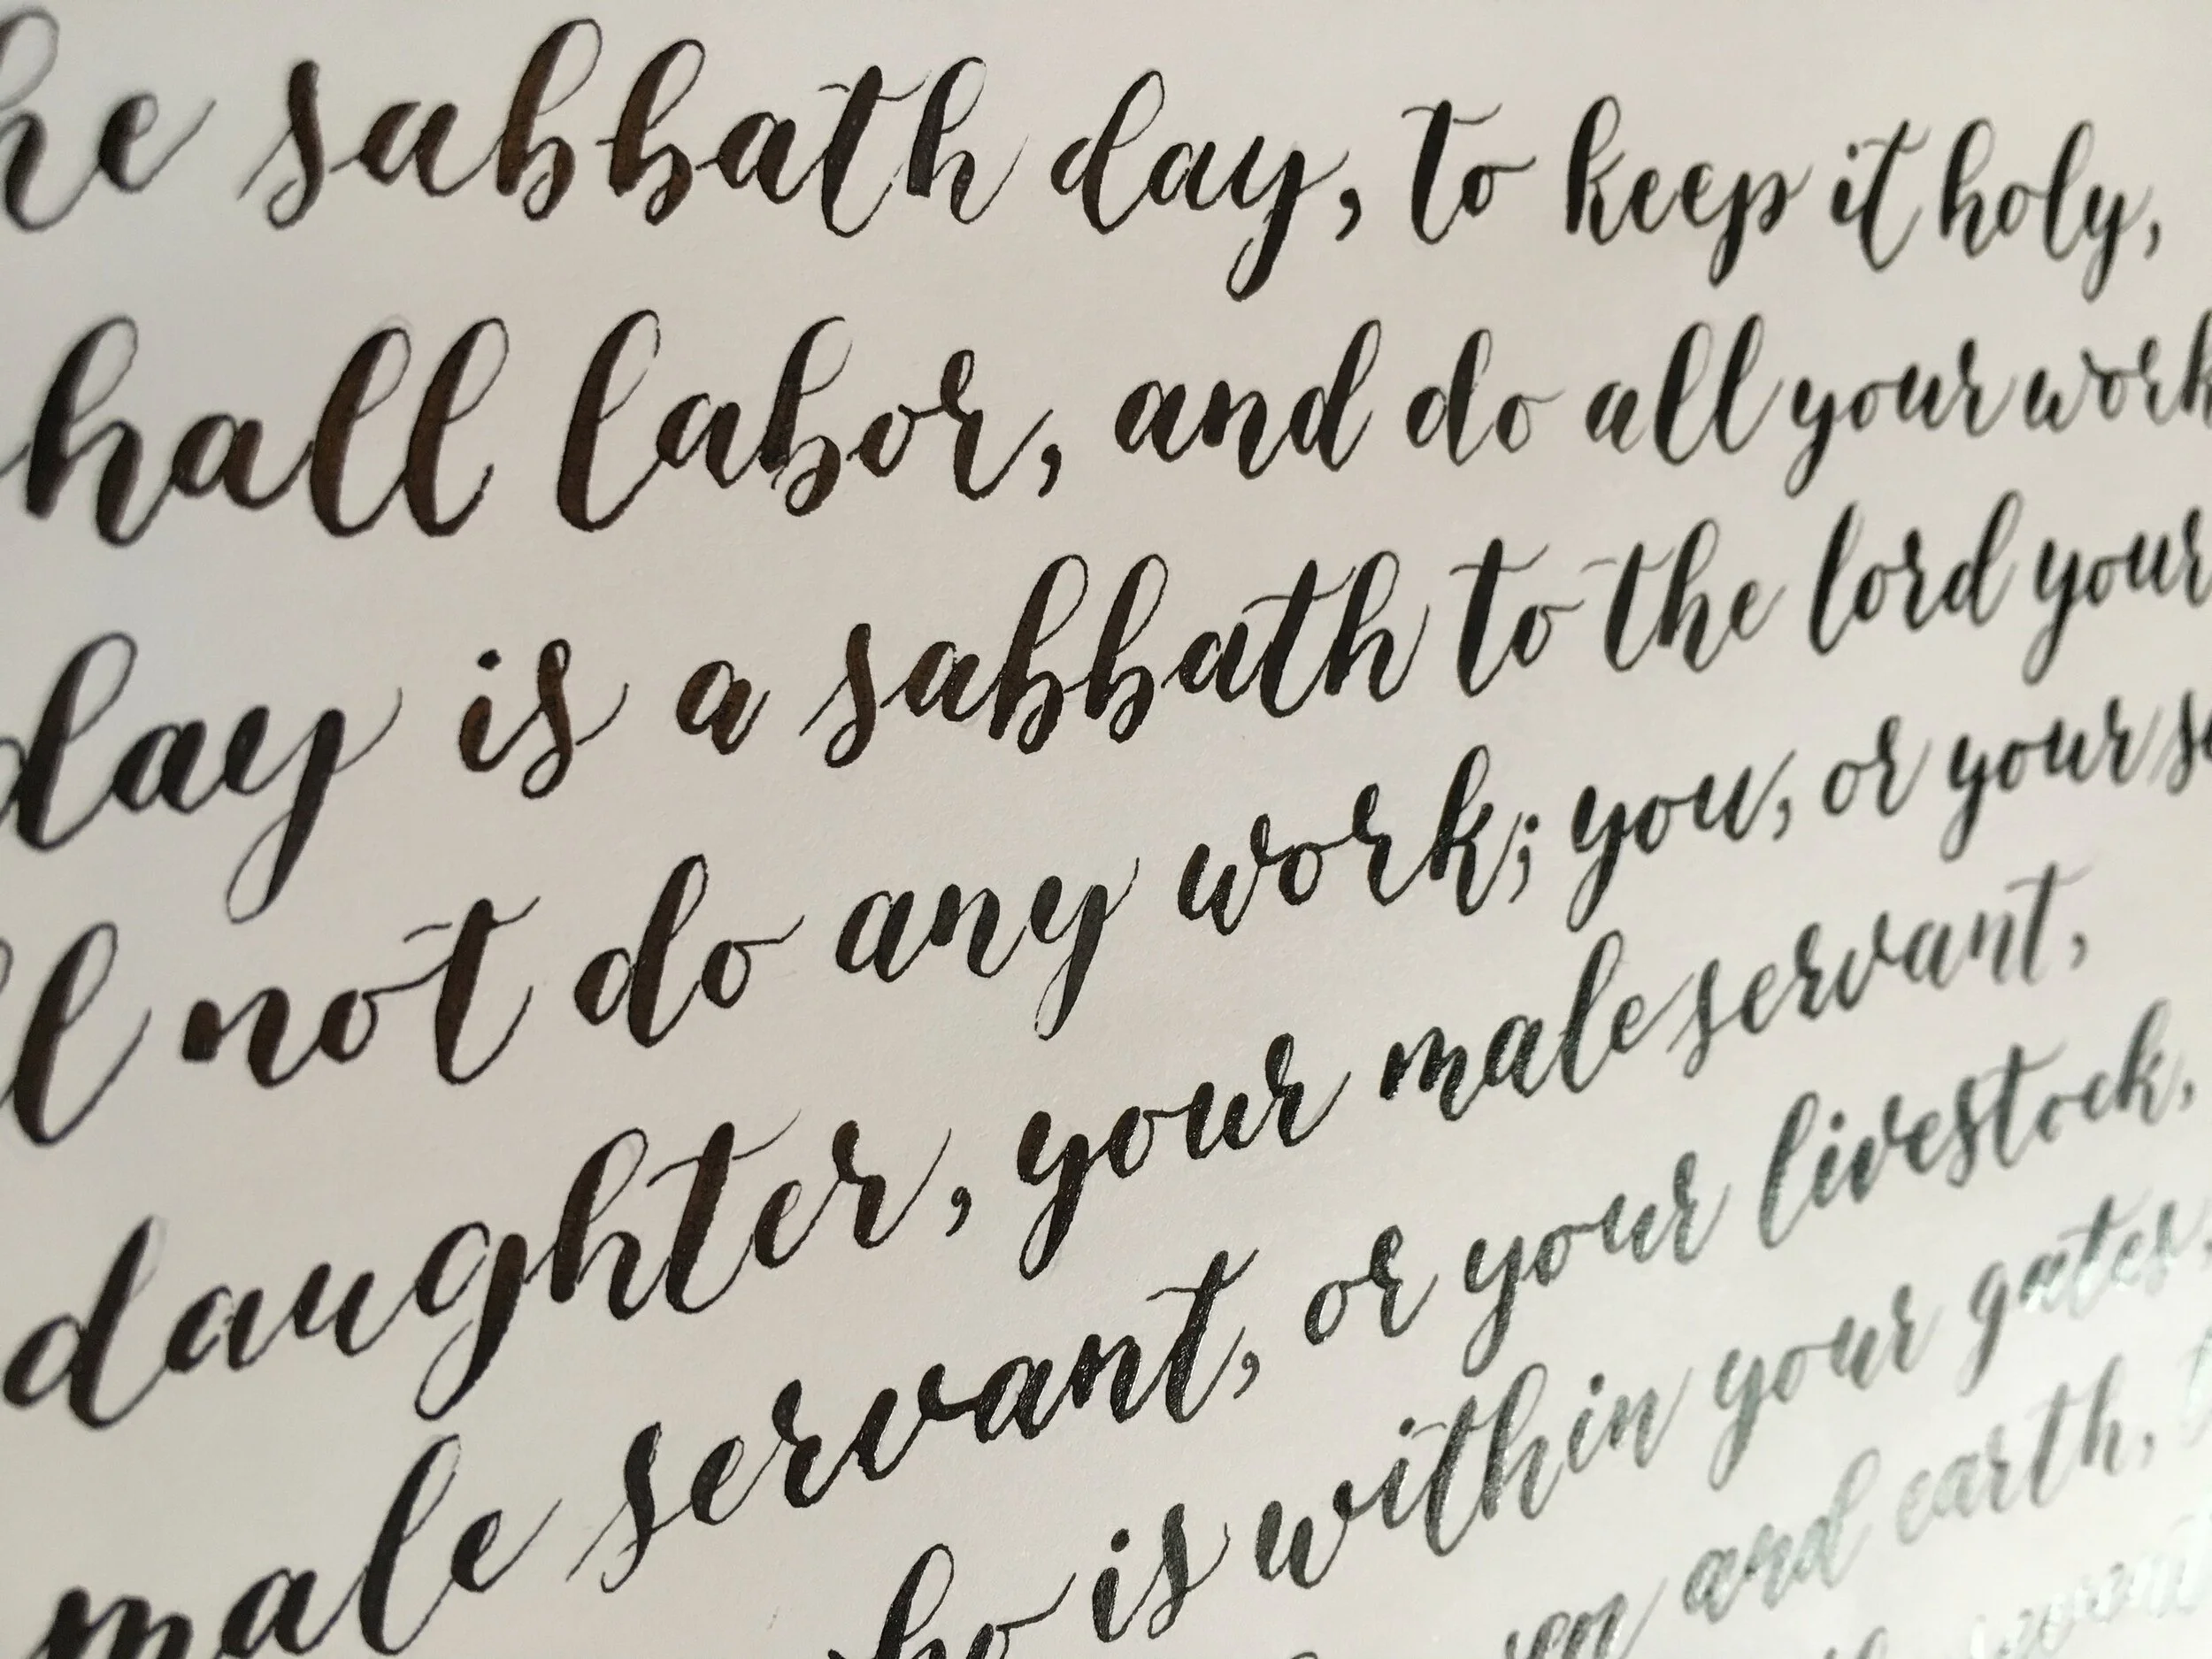 he sabbath day, to keep it holy,
hall labor, and do all your work
day is a sabbath to the lord your
l not do any work; you, or your s
daughter, your male servant,
male servant, or your livestock,
ho is within your gates,
en and earth,